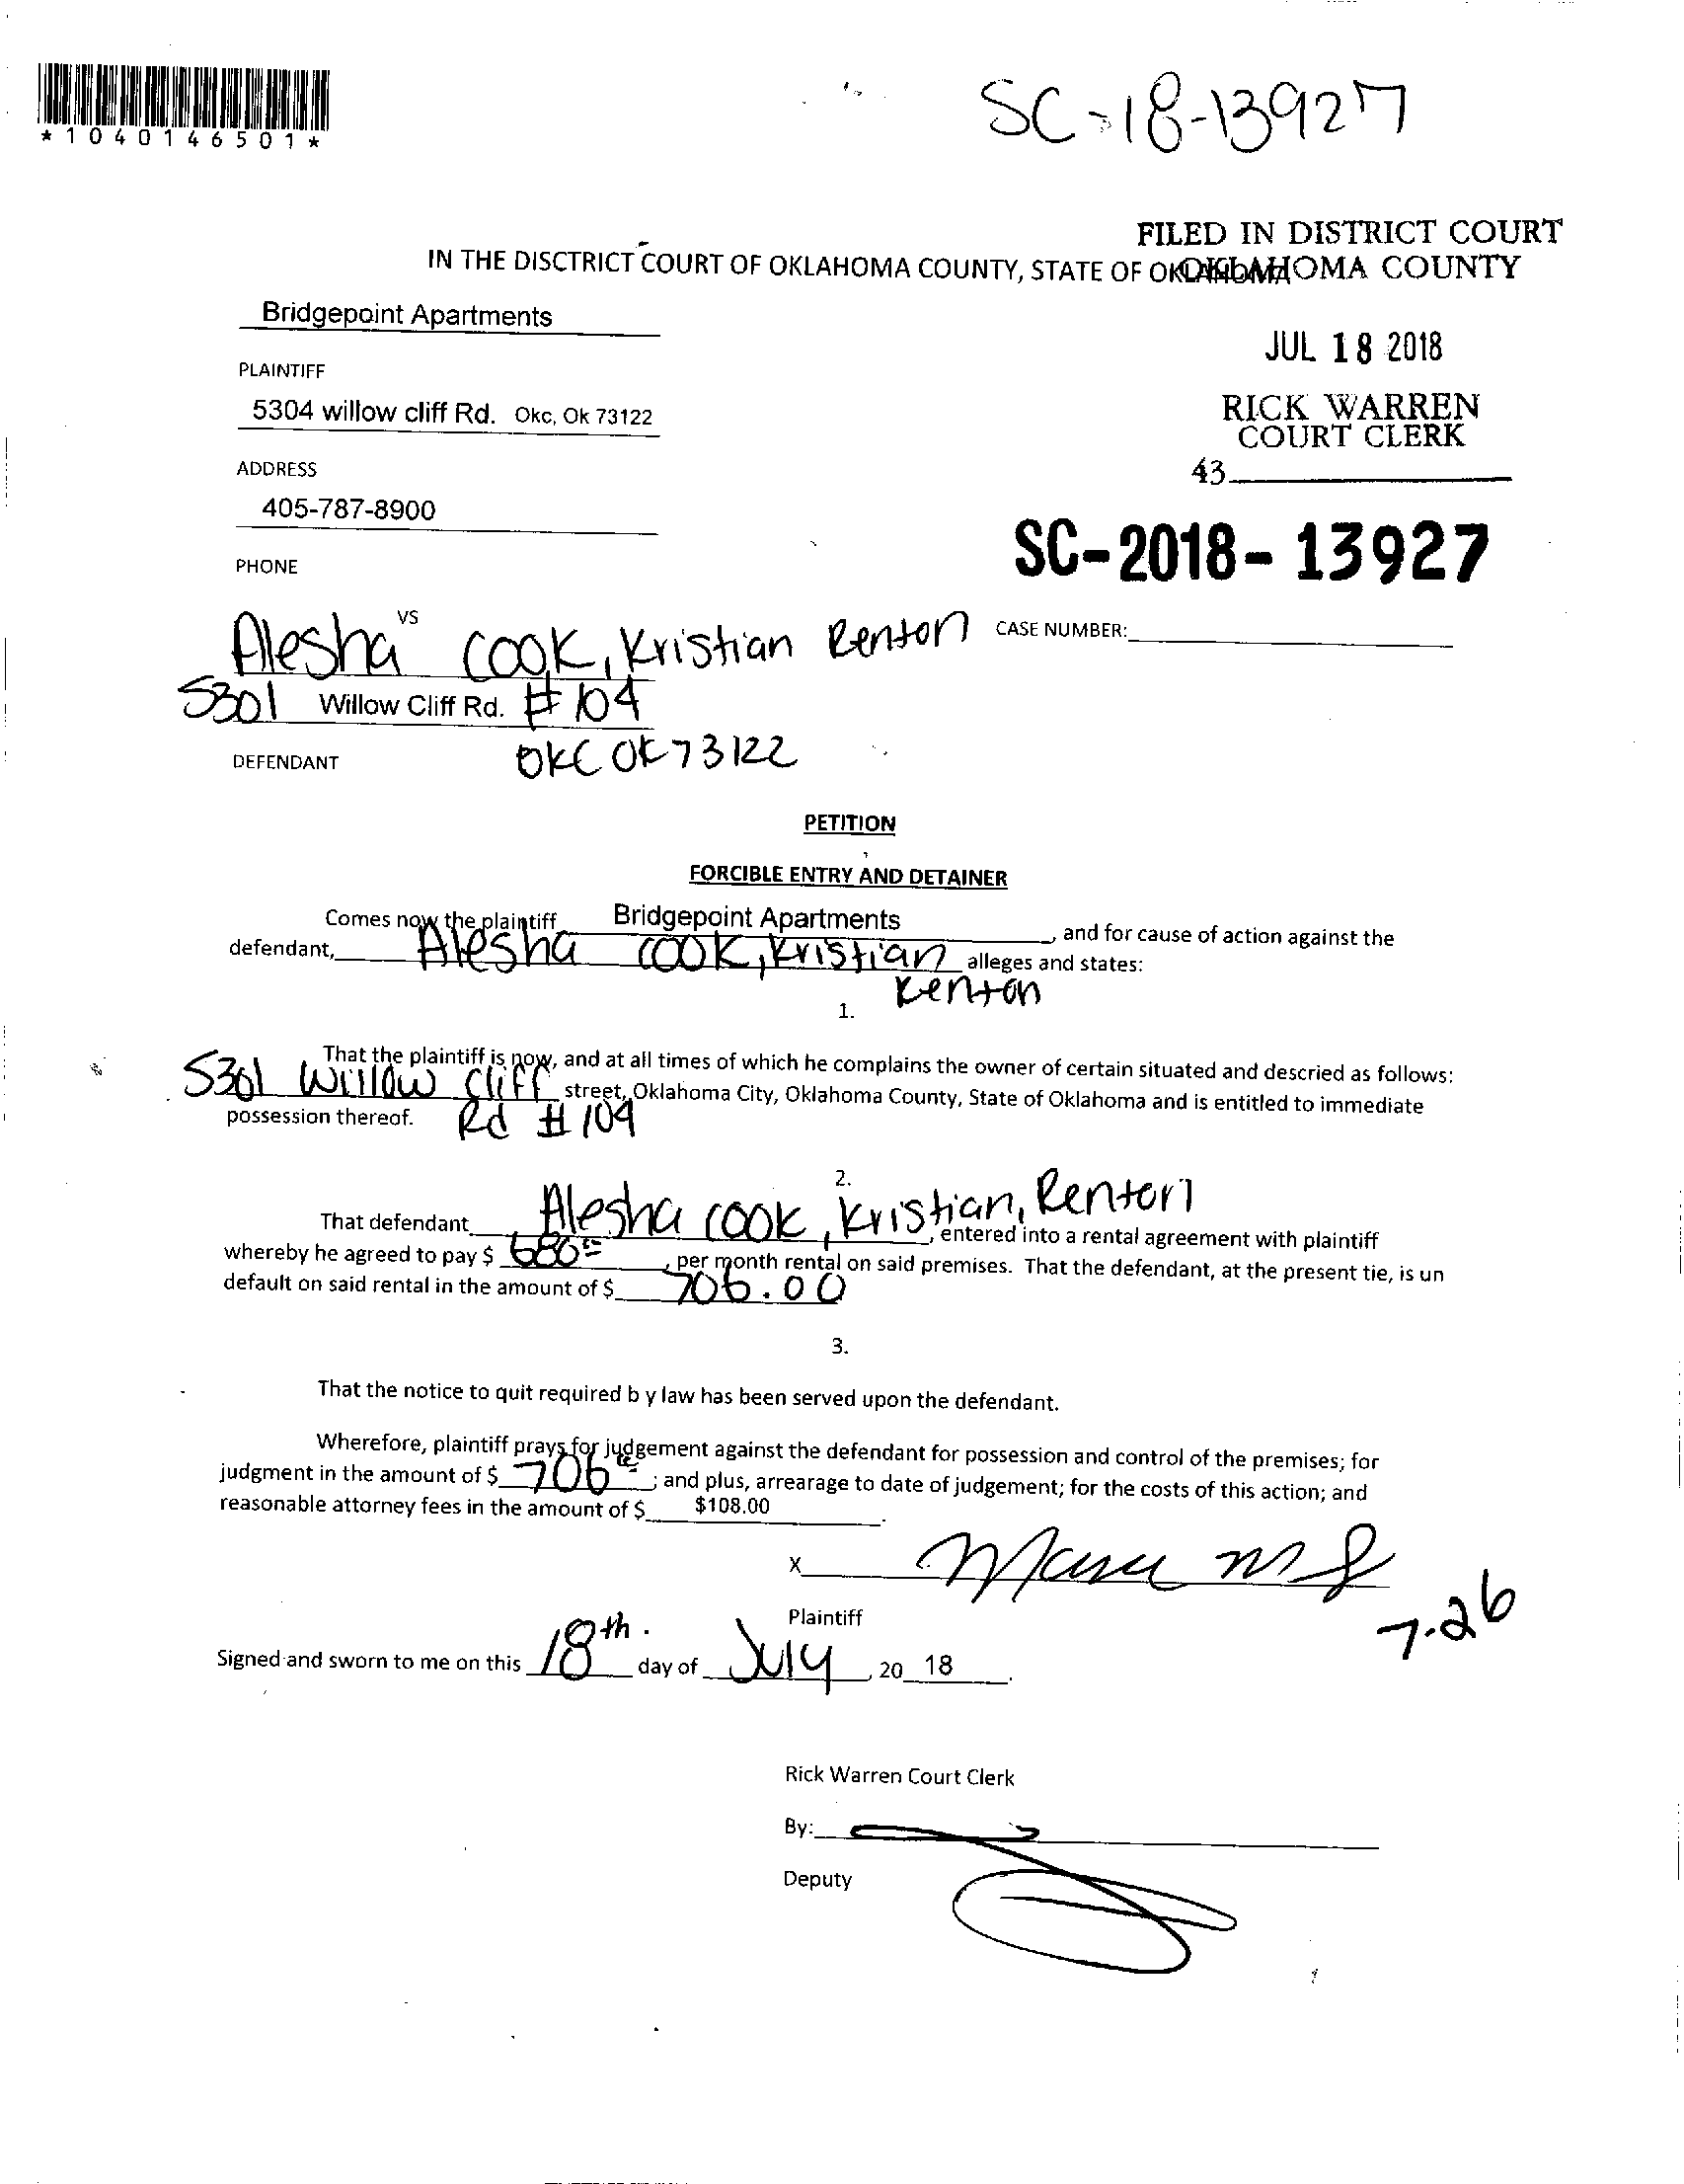 SC-18-13927
*1040146501*
FILED IN DISTRICT COURT
OKLAHOMA COUNTY
IN THE DISCTRICT COURT OF OKLAHOMA COUNTY, STATE OF OKLAHOMA
Bridgepoint Apartments
JUL 18 2018
PLAINTIFF
5304 willow cliff Rd. Okc, Ok 73122
RICK WARREN
COURT CLERK
ADDRESS
43
405-787-8900
SC-2018-13927
PHONE
VS
Alesha Cook, Kristian Renton
CASE NUMBER:
5301 Willow Cliff Rd. #104
OKC OK 73122
DEFENDANT
PETITION
FORCIBLE ENTRY AND DETAINER
Comes now the plaintiff Bridgepoint Apartments, and for cause of action against the
defendant, Alesha Cook, Kristian alleges and states:
Renton
1.
That the plaintiff is now, and at all times of which he complains the owner of certain situated and descried as follows:
5301 Willow Cliff street, Oklahoma City, Oklahoma County, State of Oklahoma and is entitled to immediate
possession thereof. Rd #104
2.
That defendant Alesha Cook, Kristian, Renton, entered into a rental agreement with plaintiff
whereby he agreed to pay $ 680.00, per month rental on said premises. That the defendant, at the present tie, is un
default on said rental in the amount of $ 706.00
3.
That the notice to quit required b y law has been served upon the defendant.
Wherefore, plaintiff prays for judgement against the defendant for possession and control of the premises; for
judgment in the amount of $ 706; and plus, arrearage to date of judgement; for the costs of this action; and
reasonable attorney fees in the amount of $ $108.00.
X
Plaintiff
7-26
Signed and sworn to me on this 18th. day of July, 20 18.
Rick Warren Court Clerk
By:
Deputy